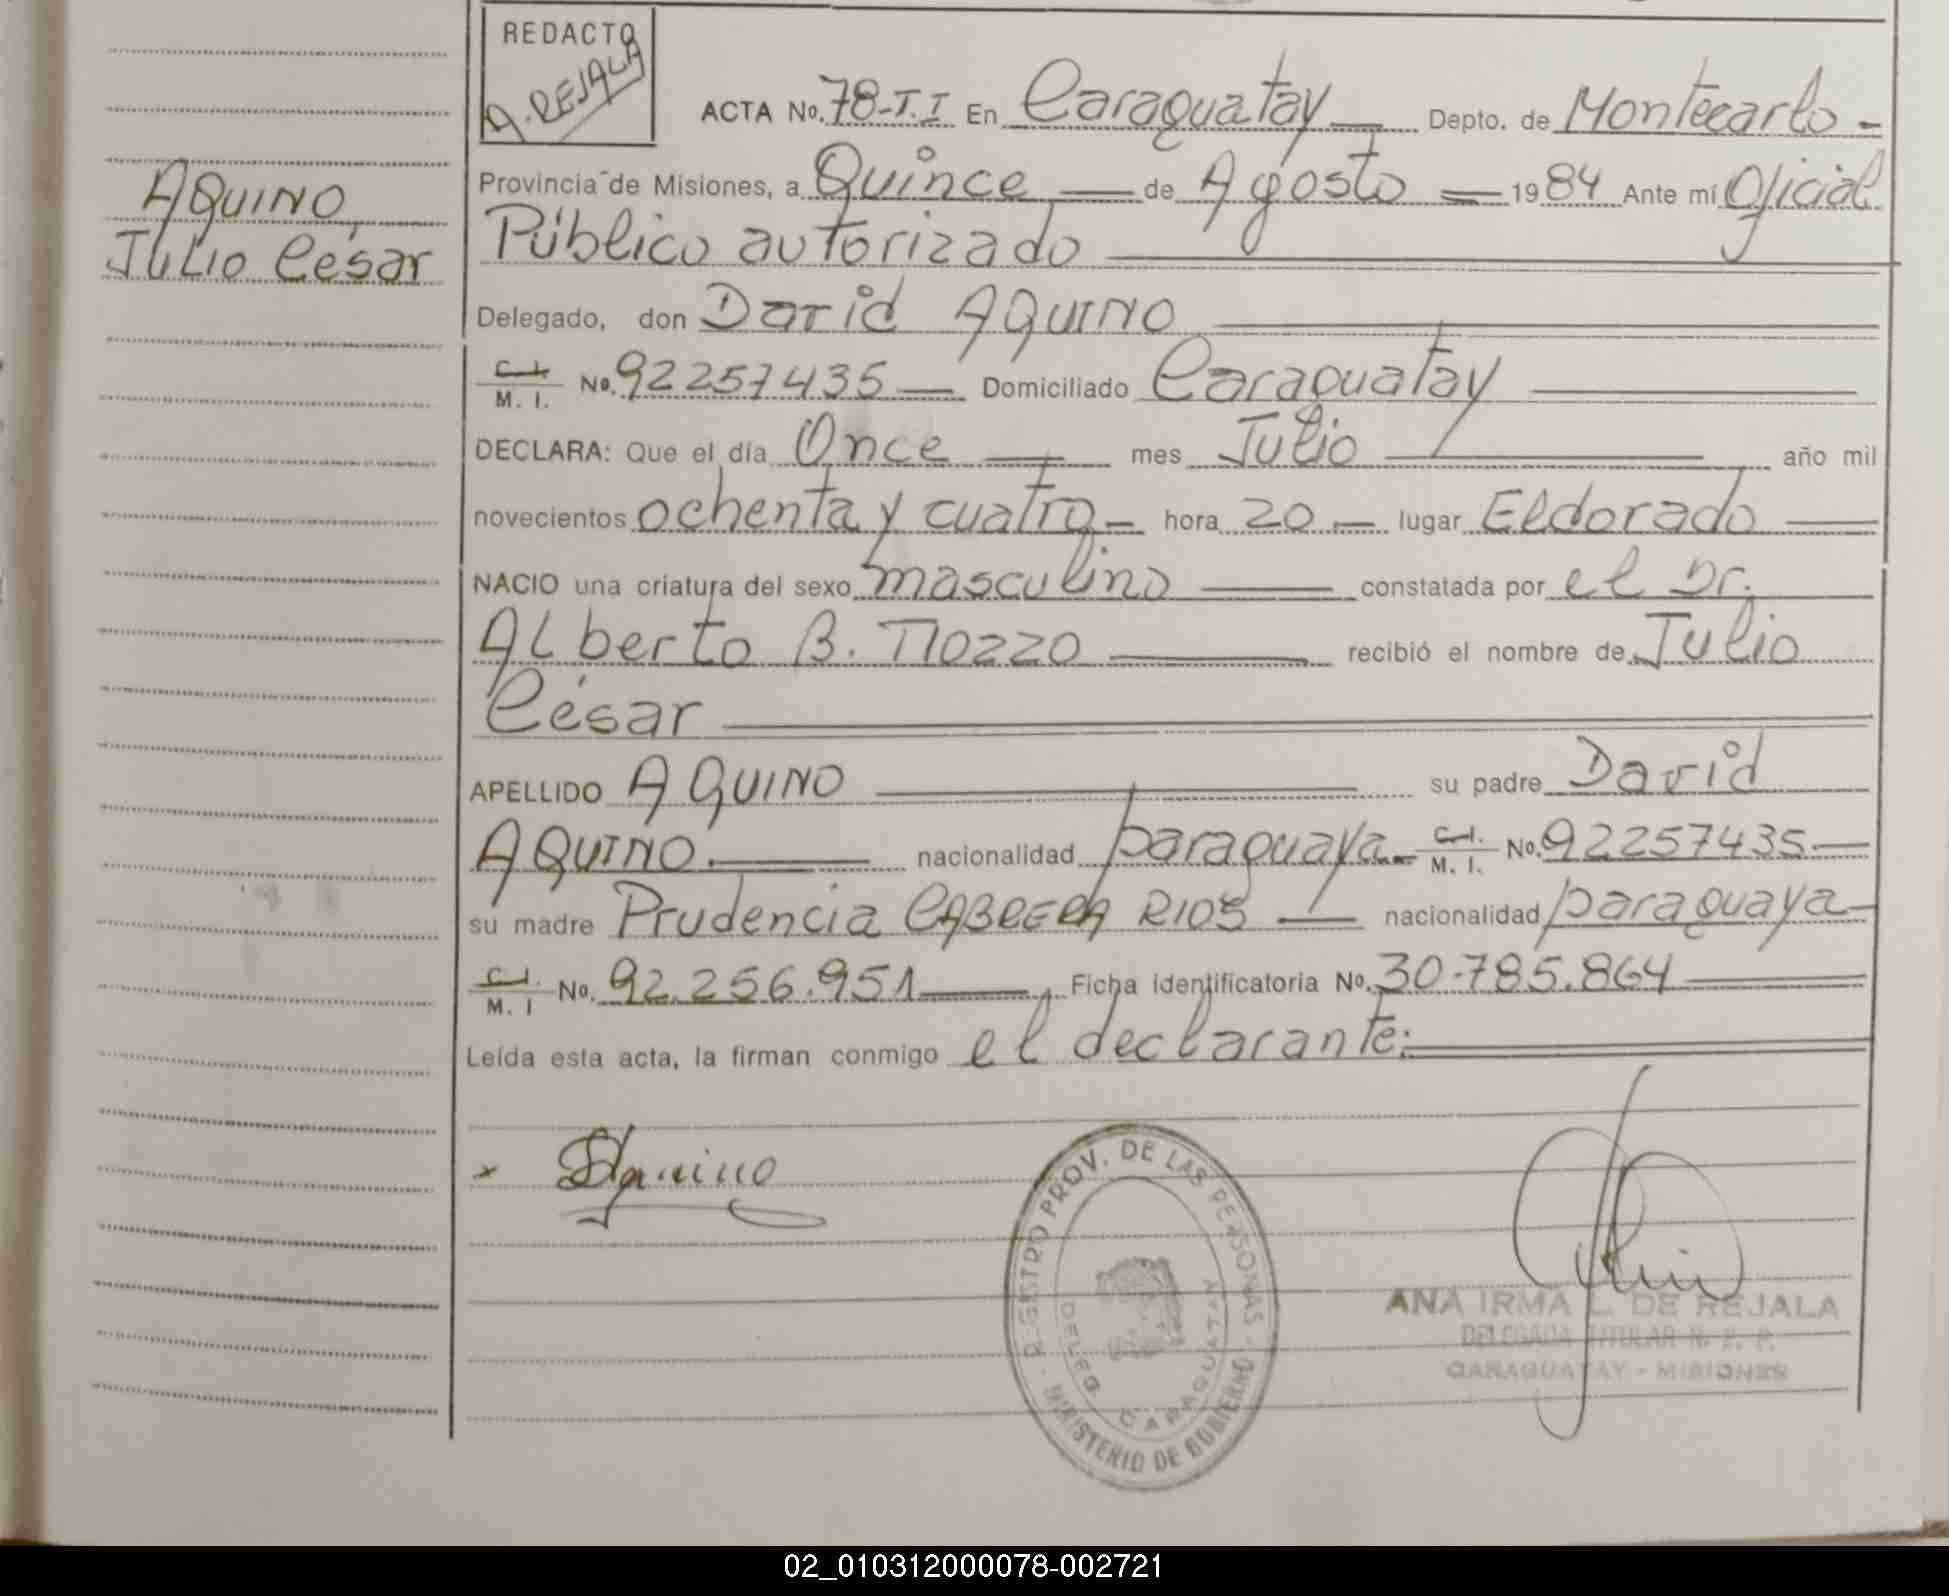 REDACTO
A. REJALA
ACTA No. 78-T.I En Caraguatay Depto. de Montecarlo -
Provincia de Misiones, a Quince de Agosto 1984 Ante mí Oficial
Público autorizado
AQUINO
Julio César
Delegado, don David AQUINO
C.I. / M. I. No. 92257435 Domiciliado Caraguatay
DECLARA: Que el día Once mes Julio año mil
novecientos ochenta y cuatro hora 20 lugar Eldorado
NACIO una criatura del sexo masculino constatada por el Dr.
Alberto B. TIOZZO recibió el nombre de Julio
César
APELLIDO AQUINO su padre David
AQUINO. nacionalidad paraguaya C.I. / M. I. No. 92257435
su madre Prudencia CABRERA RIOS nacionalidad paraguaya
C.I. / M. I No. 92.256.951 Ficha identificatoria No. 30.785.864
Leída esta acta, la firman conmigo el declarante:
x DAquino
REGISTRO PROV. DE LAS PERSONAS
MINISTERIO DE GOBIERNO
DELEG. CARAGUATAY
ANA IRMA L. DE REJALA
DELEGADA TITULAR R. P. P.
CARAGUATAY - MISIONES
02_010312000078-002721